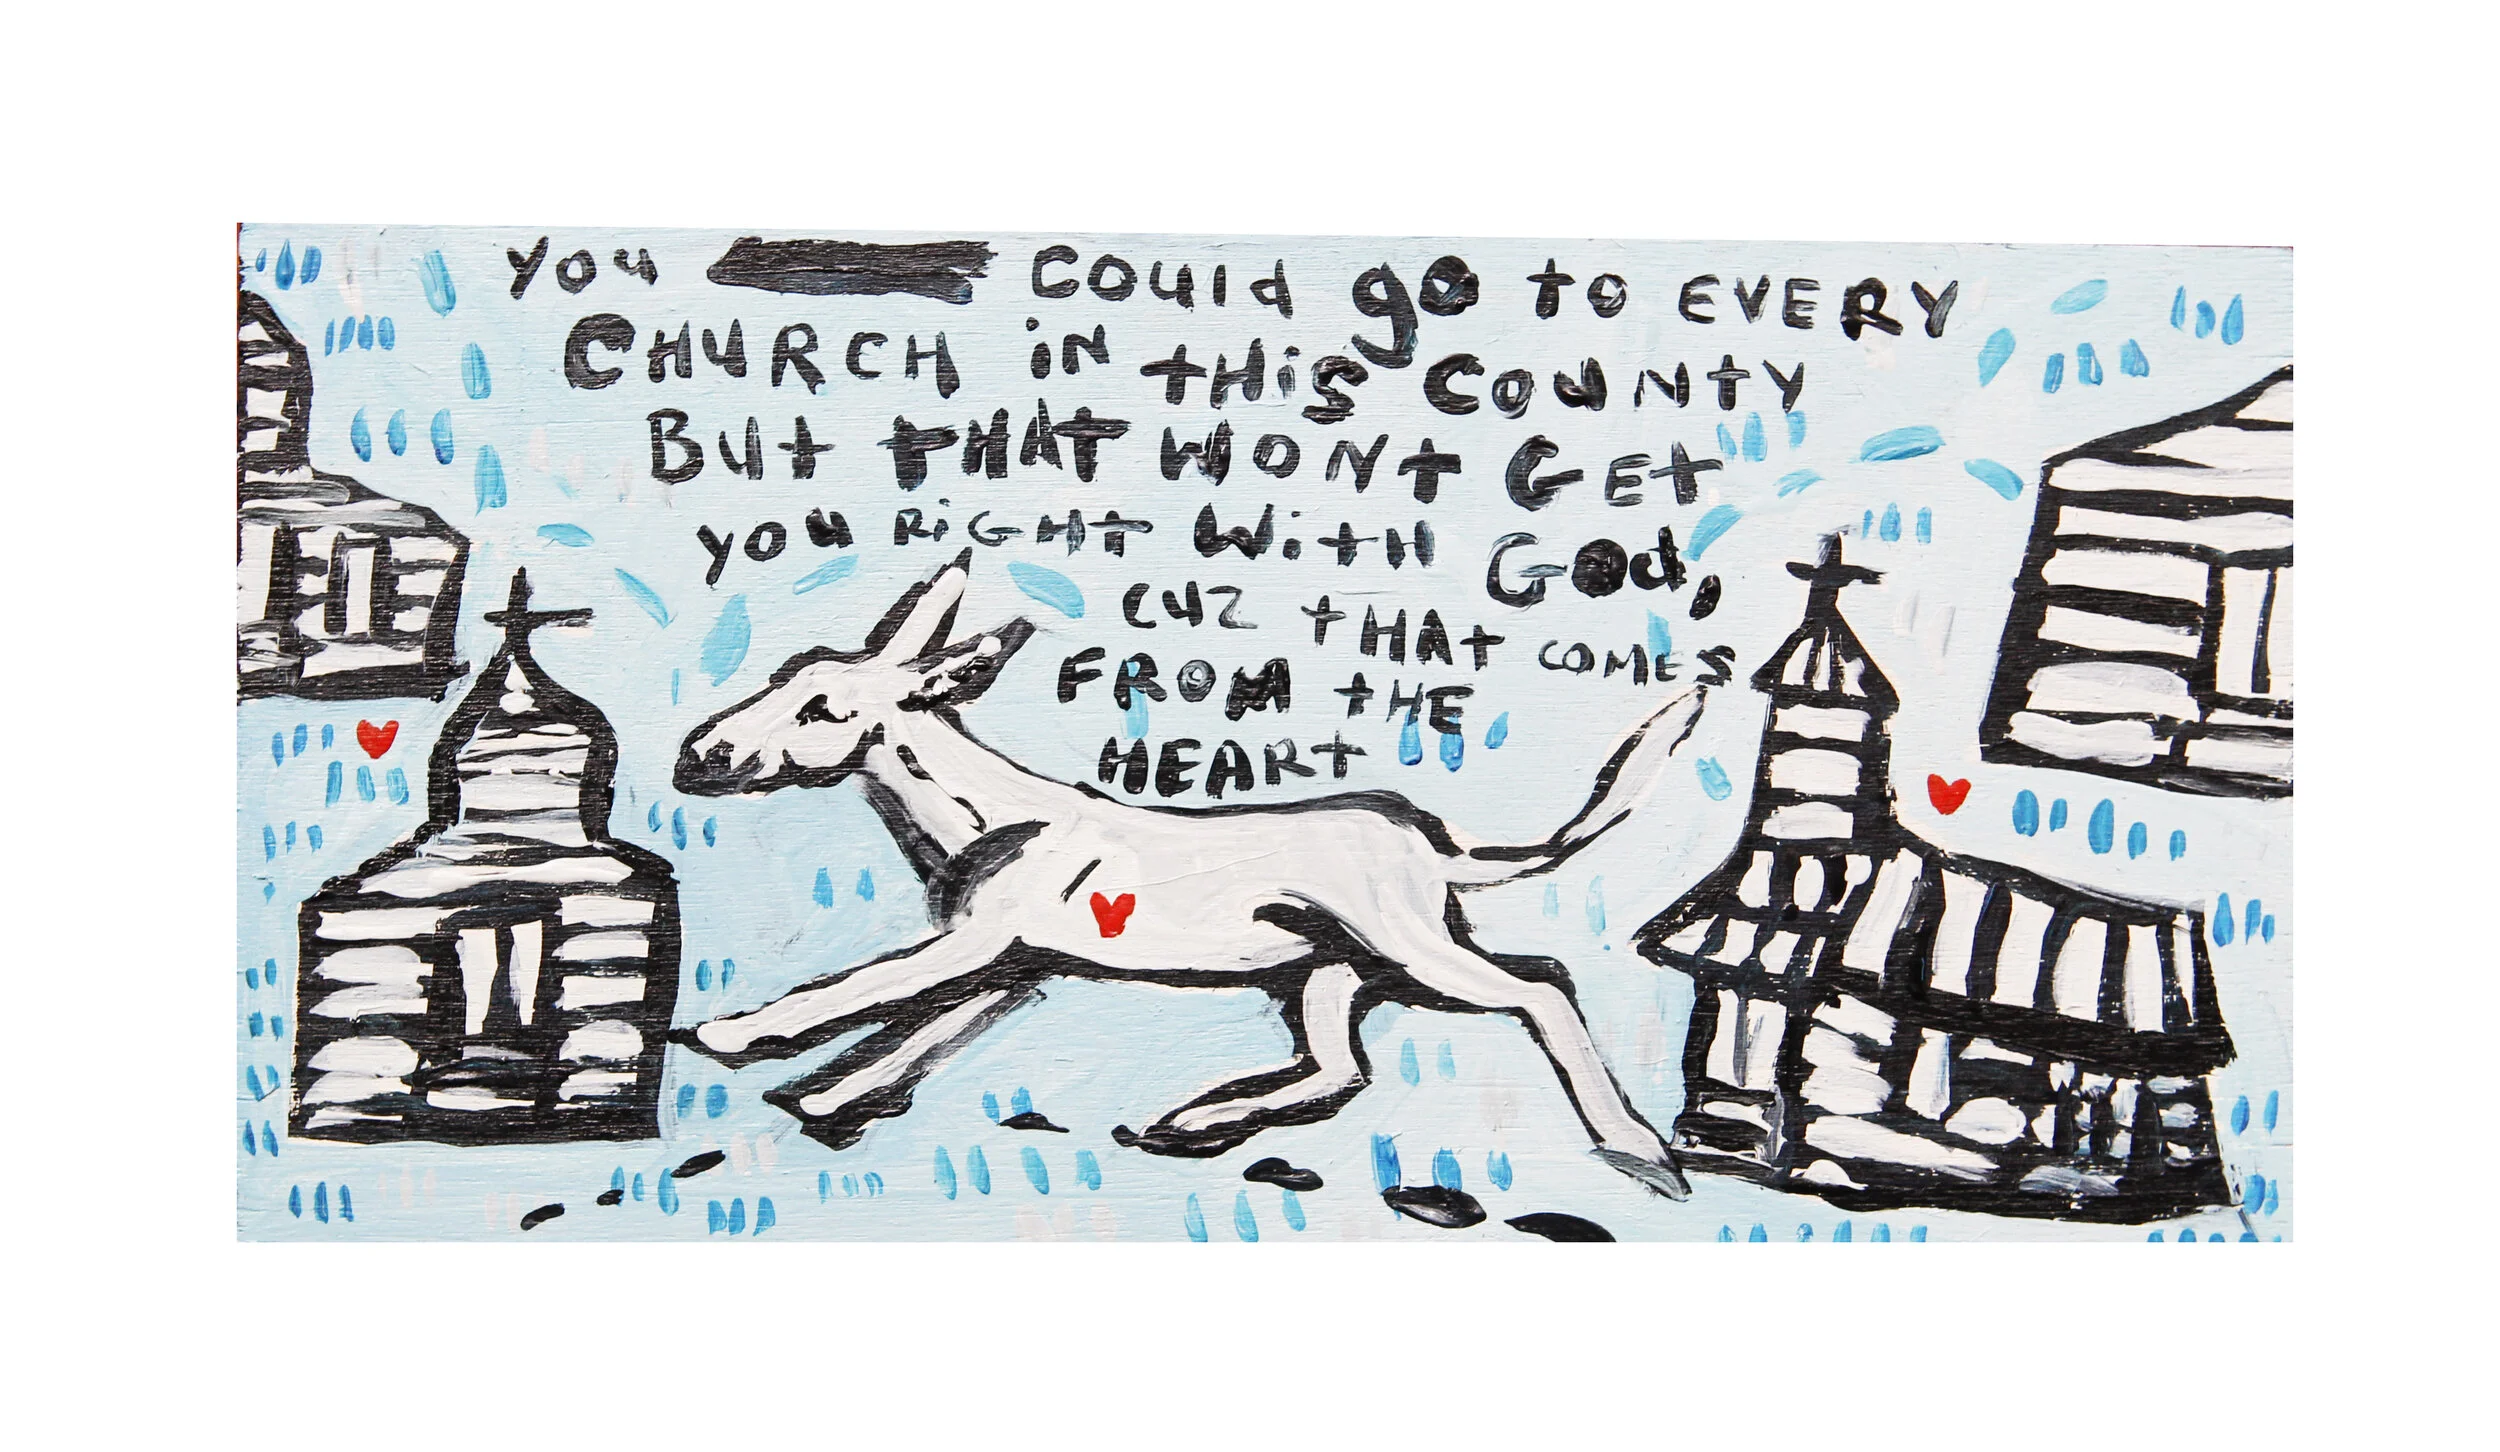 you could go to EVERY
CHURCH iN tHiS COUNTY
But tHAt WONt GEt
you RiGHt WitH God,
CUZ tHAt COMES
FROM tHE
HEARt